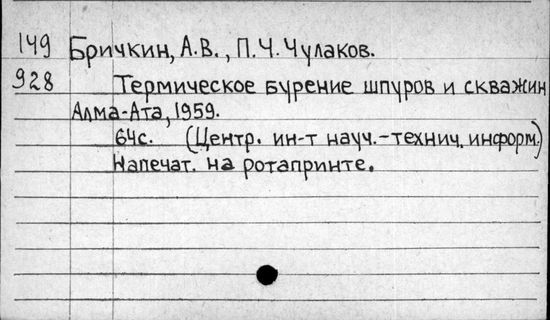 149 Бричкин, А.В., П.Ч. Чулаков.
928 Термическое бурение шпуров и скважин
Алма-Ата, 1959.
64с. (Центр. ин-т науч.-технич. информ.)
Напечат. на ротапринте.